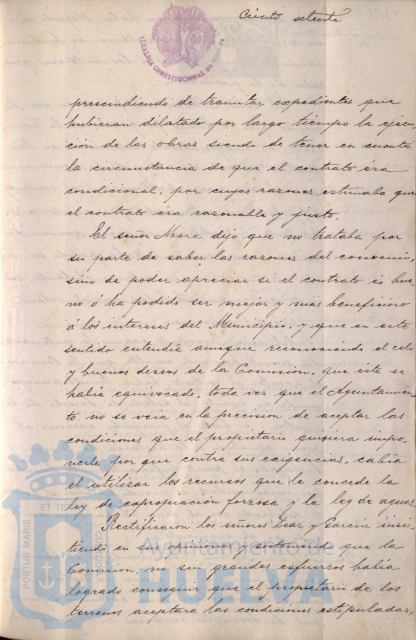 Ciento setenta
ALCALDIA CONSTITUCIONAL DE HUELVA
prescindiendo de tramitar expedientes que
hubieran dilatado por largo tiempo la ejecu-
ción de las obras siendo de tener en cuenta
la circunstancia de que el contrato era
condicional, por cuyas razones estimaba que
el contrato era razonable y justo.
El señor Mora dijo que no trataba por
su parte de saber las razones del convenio,
sino de poder apreciar si el contrato es bue-
no ó ha podido ser mejor y mas beneficioso
á los intereses del Municipio, y que en este
sentido entendía aunque reconociendo el celo
y buenos deseos de la Comisión, que esta se
había equivocado, toda vez que el Ayuntamien-
to no se veía en la precision de aceptar las
condiciones que el propietario quisiera impo-
nerle por que contra sus exigencias, cabía
el utilizar los recursos que le concede la
ley de expropiación forzosa y la ley de aguas.
Rectificaron los señores y García insis-
tiendo en sus opiniones y sosteniendo que la
Comision, no sin grandes esfuerzos habia
logrado conseguir que el propietario de los
terrenos aceptara las condiciones estipuladas,
PORTUS MARIS ET TERRAE CUSTODIA
Ayuntamiento de
HUELVA